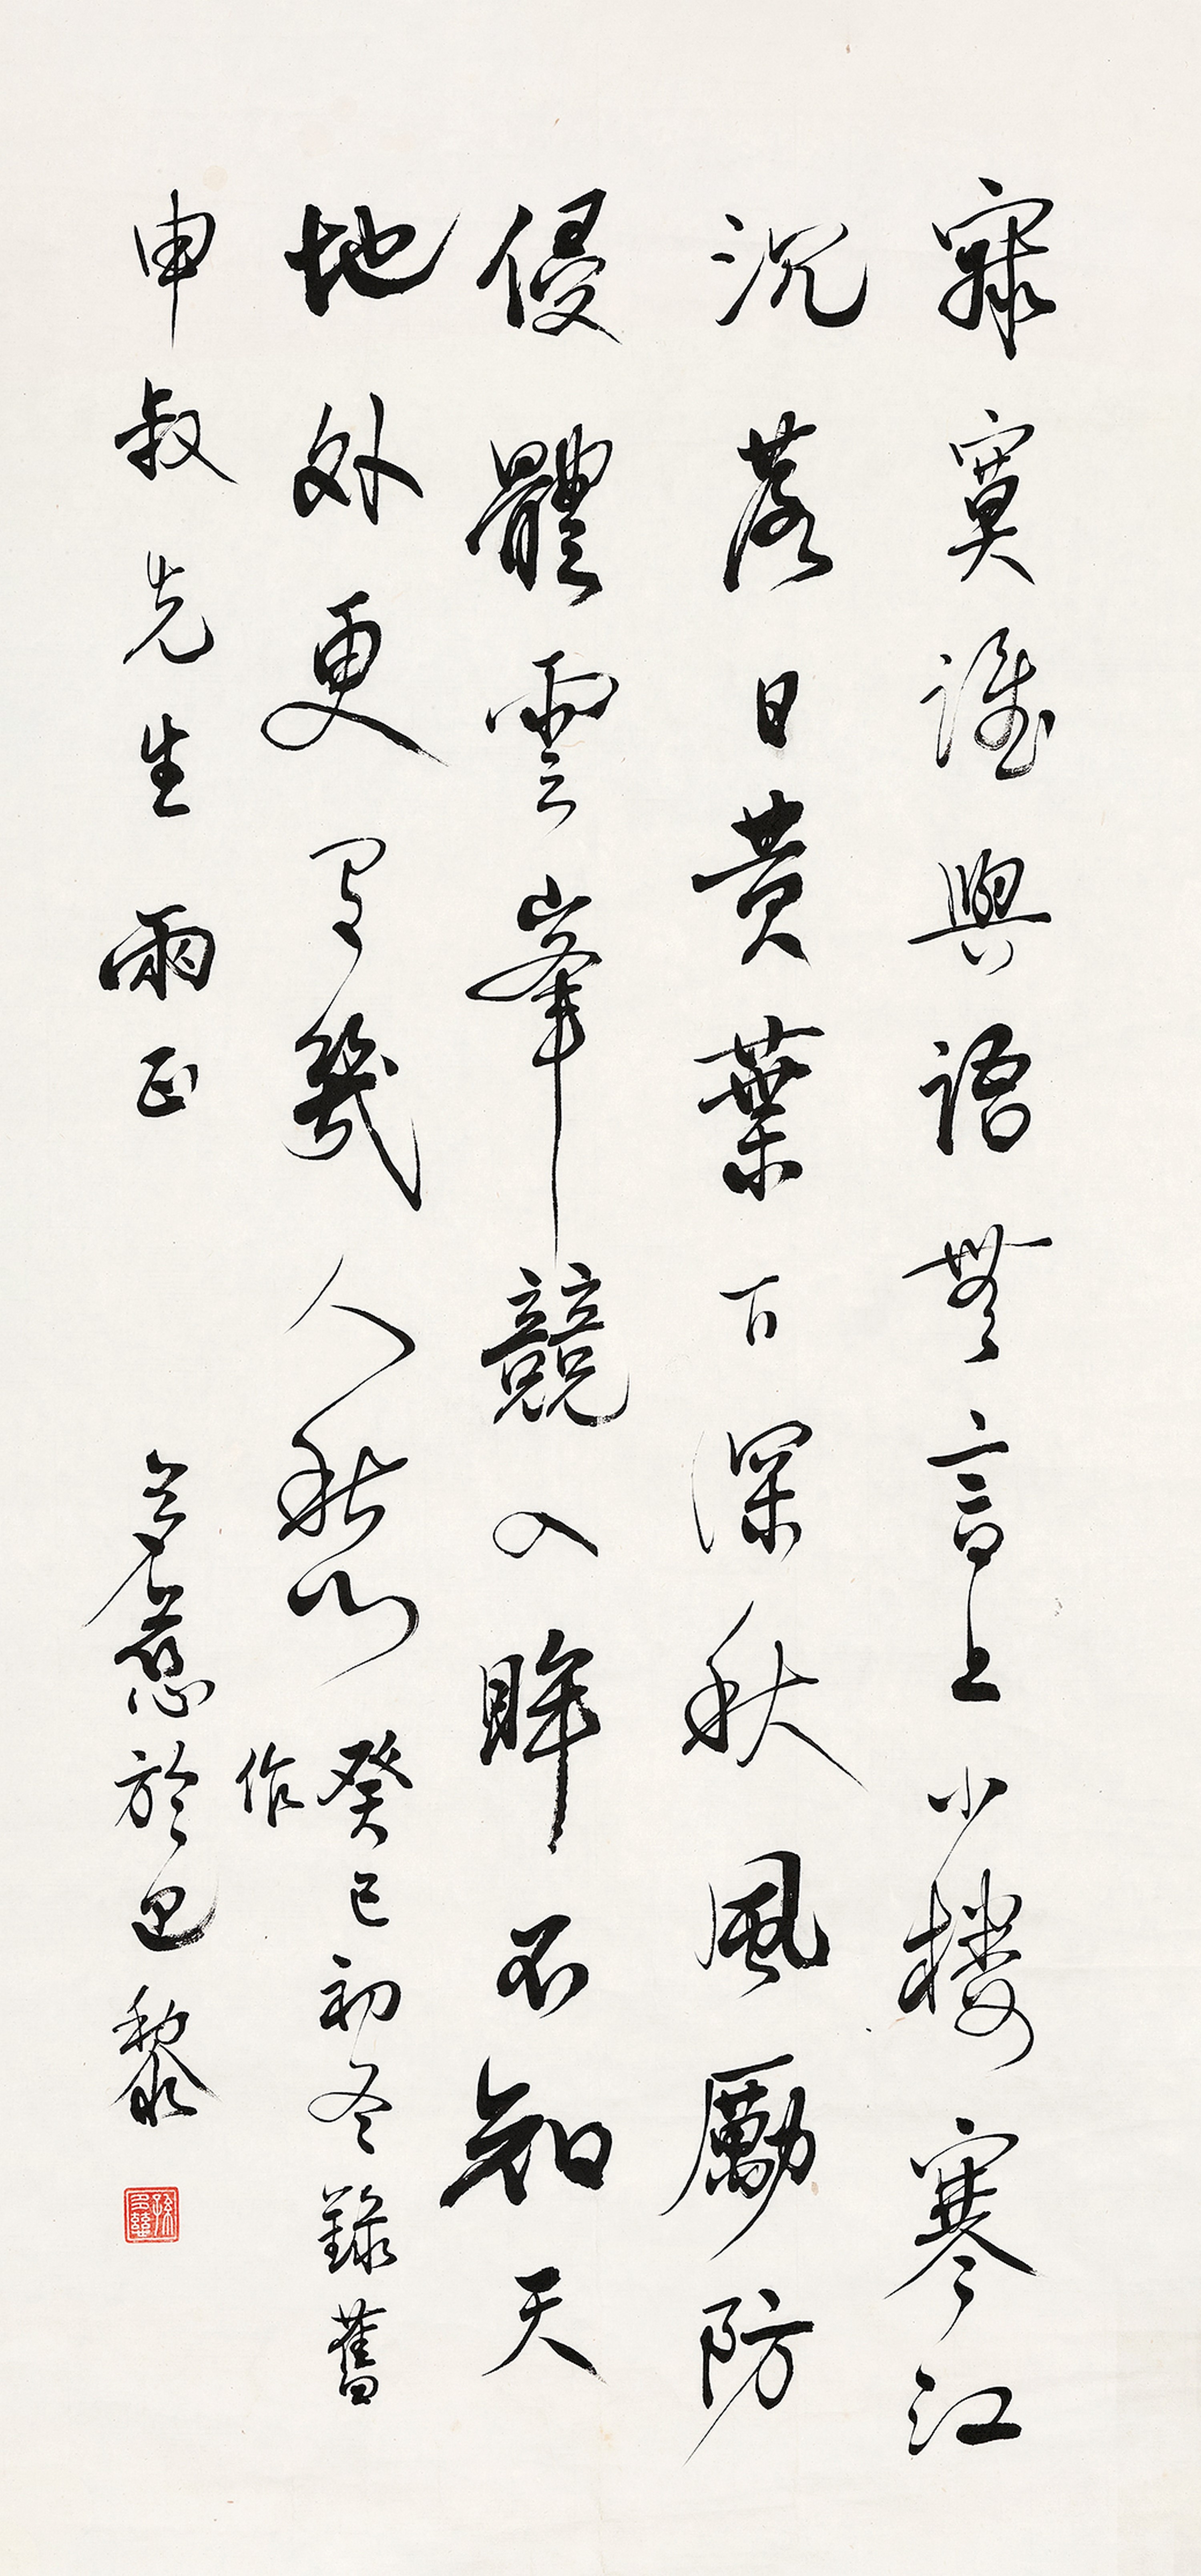 寂寞誰與語無言上小樓寒江
沉落日黃葉下深秋風勵防
侵體雲峯競入眸不知天
地外更有幾人愁 癸巳初冬錄舊
作
申叔先生兩正 多慈於巴黎
孫多慈